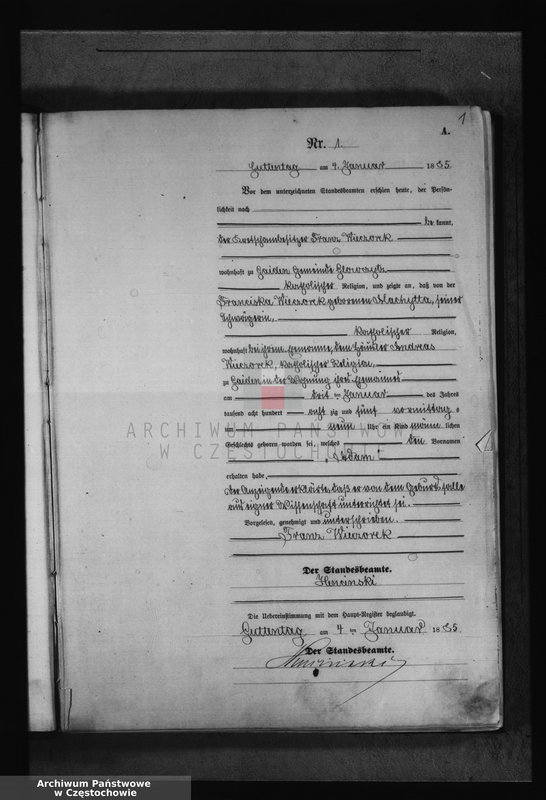 1
A.
Nr. 1.
Guttentag am 4. Januar 1885.
Vor dem unterzeichneten Standesbeamten erschien heute, der Persön-
lichkeit nach
be kannt,
der Kretschambesitzer Franz Wieczorek
wohnhaft zu Haiden Gemeinde Glowczytz
katholischer Religion, und zeigte an, daß von der
Franciska Wieczorek geborenen Blachytta, seiner
Schwägerin,
katholischer Religion,
wohnhaft bei ihrem Ehemanne, dem Häusler Andreas
Wieczorek, katholischer Religion,
zu Haiden in der Wohnung ihres Ehemannes
am drit ten Januar des Jahres
tausend acht hundert acht zig und fünf vormittags
um neun Uhr ein Kind männ lichen
Geschlechts geboren worden sei, welches den Vornamen
"Adam"
erhalten habe.
Der Anzeigende erklärte, daß er von dem Geburtsfalle
aus eigner Wissenschaft unterrichtet sei.
Vorgelesen, genehmigt und unterschrieben.
Franz Wieczorek
Der Standesbeamte.
Die Uebereinstimmung mit dem Haupt-Register beglaubigt.
Guttentag am 4 ten Januar 1885.
Der Standesbeamte.
ARCHIWUM PAŃSTWOWE
W CZĘSTOCHOWIE
Archiwum Państwowe
w Częstochowie